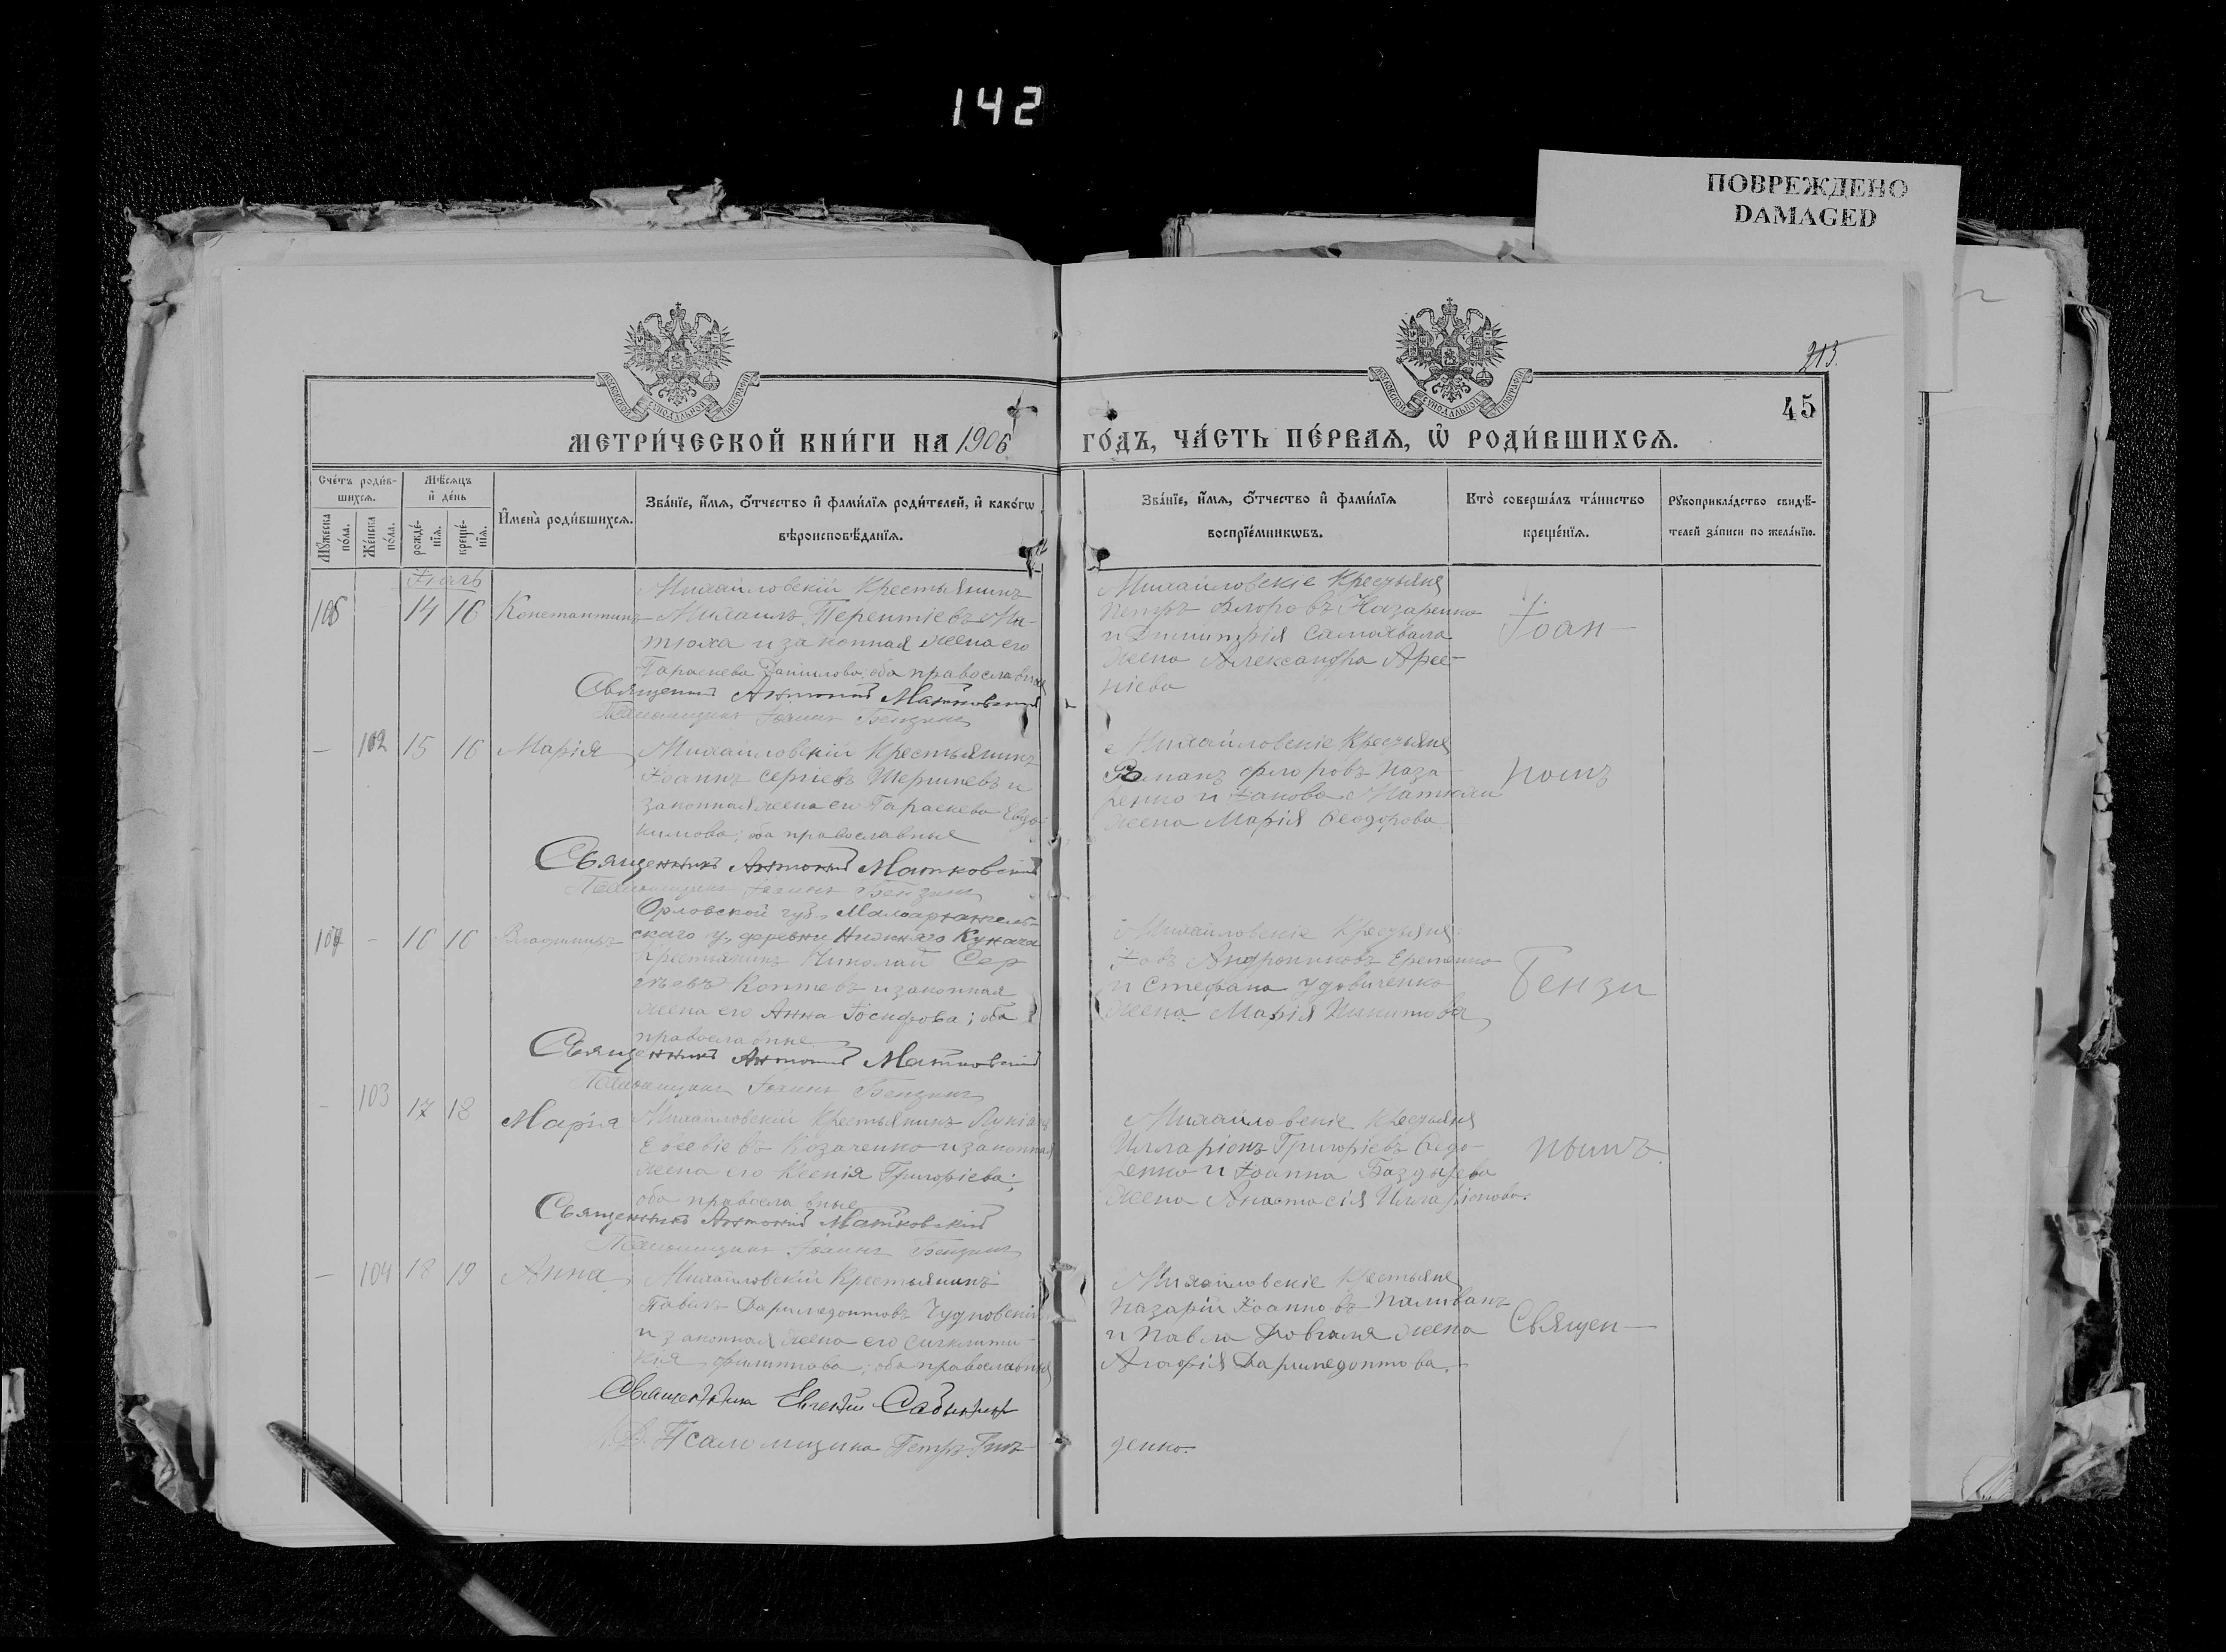 142
ПОВРЕЖДЕНО
DAMAGED
215.
45
МОСКОВСКОЙ СѴНОДАЛЬНОЙ ТИПОГРАФІИ
МОСКОВСКОЙ СѴНОДАЛЬНОЙ ТИПОГРАФІИ
МЕТРИ́ЧЕСКОЙ КНИ́ГИ НА 1906 ГО́ДЪ, ЧА́СТЬ ПЕ́РВАѦ, Ѡ҆ РОДИ́ВШИХСѦ.
Сче́тъ роди́в-
шихсѧ.
Мꙋ́жеска по́ла.
Же́нска по́ла.
Мѣ́сѧцъ
и҆ де́нь
рожде́-
нїѧ.
креще́-
нїѧ.
И҆мена̀ роди́вшихсѧ.
Зва́нїе, и҆́мѧ, ѻ҆́тчество и҆ фами́лїѧ роди́телей, и҆ како́гѡ
вѣроисповѣ́данїѧ.
Зва́нїе, и҆́мѧ, ѻ҆́тчество и҆ фами́лїѧ
воспрїе́мникѡвъ.
Кто̀ соверша́лъ та́инство
креще́нїѧ.
Рꙋкоприкла́дство свидѣ́-
телей за́писи по жела́нїю.
Іюль
106 14 16 Константинъ
Михайловскій Крестьянинъ
Михаилъ Терентіевъ Ми-
тюха и законная жена его
Параскева Данилова; оба православные
Священникъ Антоній Матковскій
Псаломщикъ Іоаннъ Бензинъ
Михайловскіе Крестьяне
Петръ Флоровъ Назаренко
и Димитрія Самохвала
жена Александра Арсе-
ніева
Іоан-
— 102 15 16 Марія
Михайловскій Крестьянинъ
Іоаннъ Сергіевъ и
законная жена его Параскева Евдо-
кимова; оба православные
Священникъ Антоній Матковскій
Псаломщикъ Іоаннъ Бензинъ
Михайловскіе Крестьяне
Романъ Флоровъ Наза-
ренко и Іакова
жена Марія Ѳеодорова
номъ
107 — 16 16 Владиміръ
Орловской губ., Малоархангель-
скаго у., деревни Нижняго Кунача
Крестьянинъ Николай Сер-
гѣевъ Коптевъ и законная
жена его Анна Іосифова; оба
православные
Священникъ Антоній Матковскій
Псаломщикъ Іоаннъ Бензинъ
Михайловскіе Крестьяне
Іовъ Андрониковъ Еременко
и Стефана Удовиченко
жена Марія Никитова
Бензи
— 103 17 18 Марія
Михайловскій Крестьянинъ Лукіанъ
Евсевіевъ Козаченко и законная
жена его Ксенія Григоріева;
оба православные
Священникъ Антоній Матковскій
Псаломщикъ Іоаннъ Бензинъ
Михайловскіе Крестьяне
Илларіонъ Григоріевъ Ѳедо-
ренко и Іоанна Баздырева
жена Анастасія Илларіонова.
нымъ.
— 104 18 19 Анна
Михайловскій Крестьянинъ
Павелъ Даримедонтовъ Чудновскій
и законная жена его Синклити-
кія Филиппова; оба православные
Священника Евгеній Сабининъ
Псаломщика Петръ Гнѣ-
денко.
Михайловскіе Крестьяне
Назарій Іоанновъ Паливанъ
и Павла Довгаля жена
Агафія Даримедонтова.
Священ-